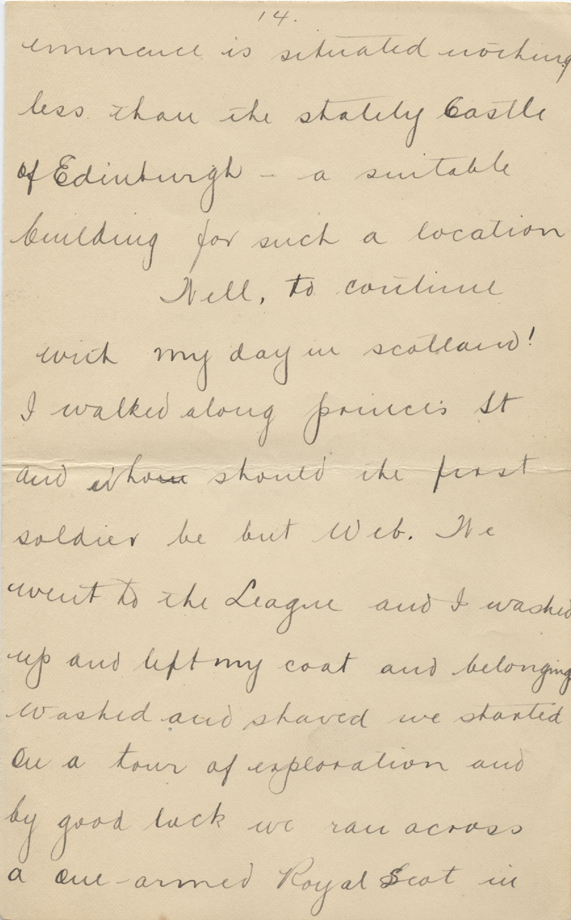 14.
eminence is situated nothing
less than the stately Castle
of Edinburgh - a suitable
building for such a location
Well, to continue
with my day in scotland!
I walked along princis St
and whom should the first
soldier be but Web. We
went to the League and I washed
up and left my coat and belonging
washed and shaved we started
on a tour of exploration and
by good luck we ran across
a one-armed Royal Scot in